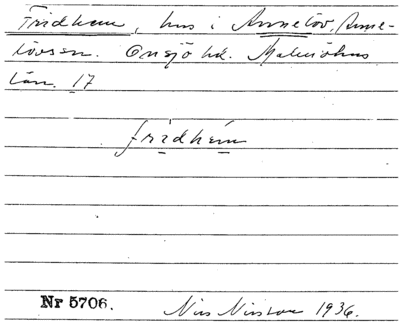 Fridhem, hus i Annelöv, Anne-
lövs sn. Onsjö hd. Malmöhus
län. 17
fridhém
Nr 5706. Nils Nilsson 1936.